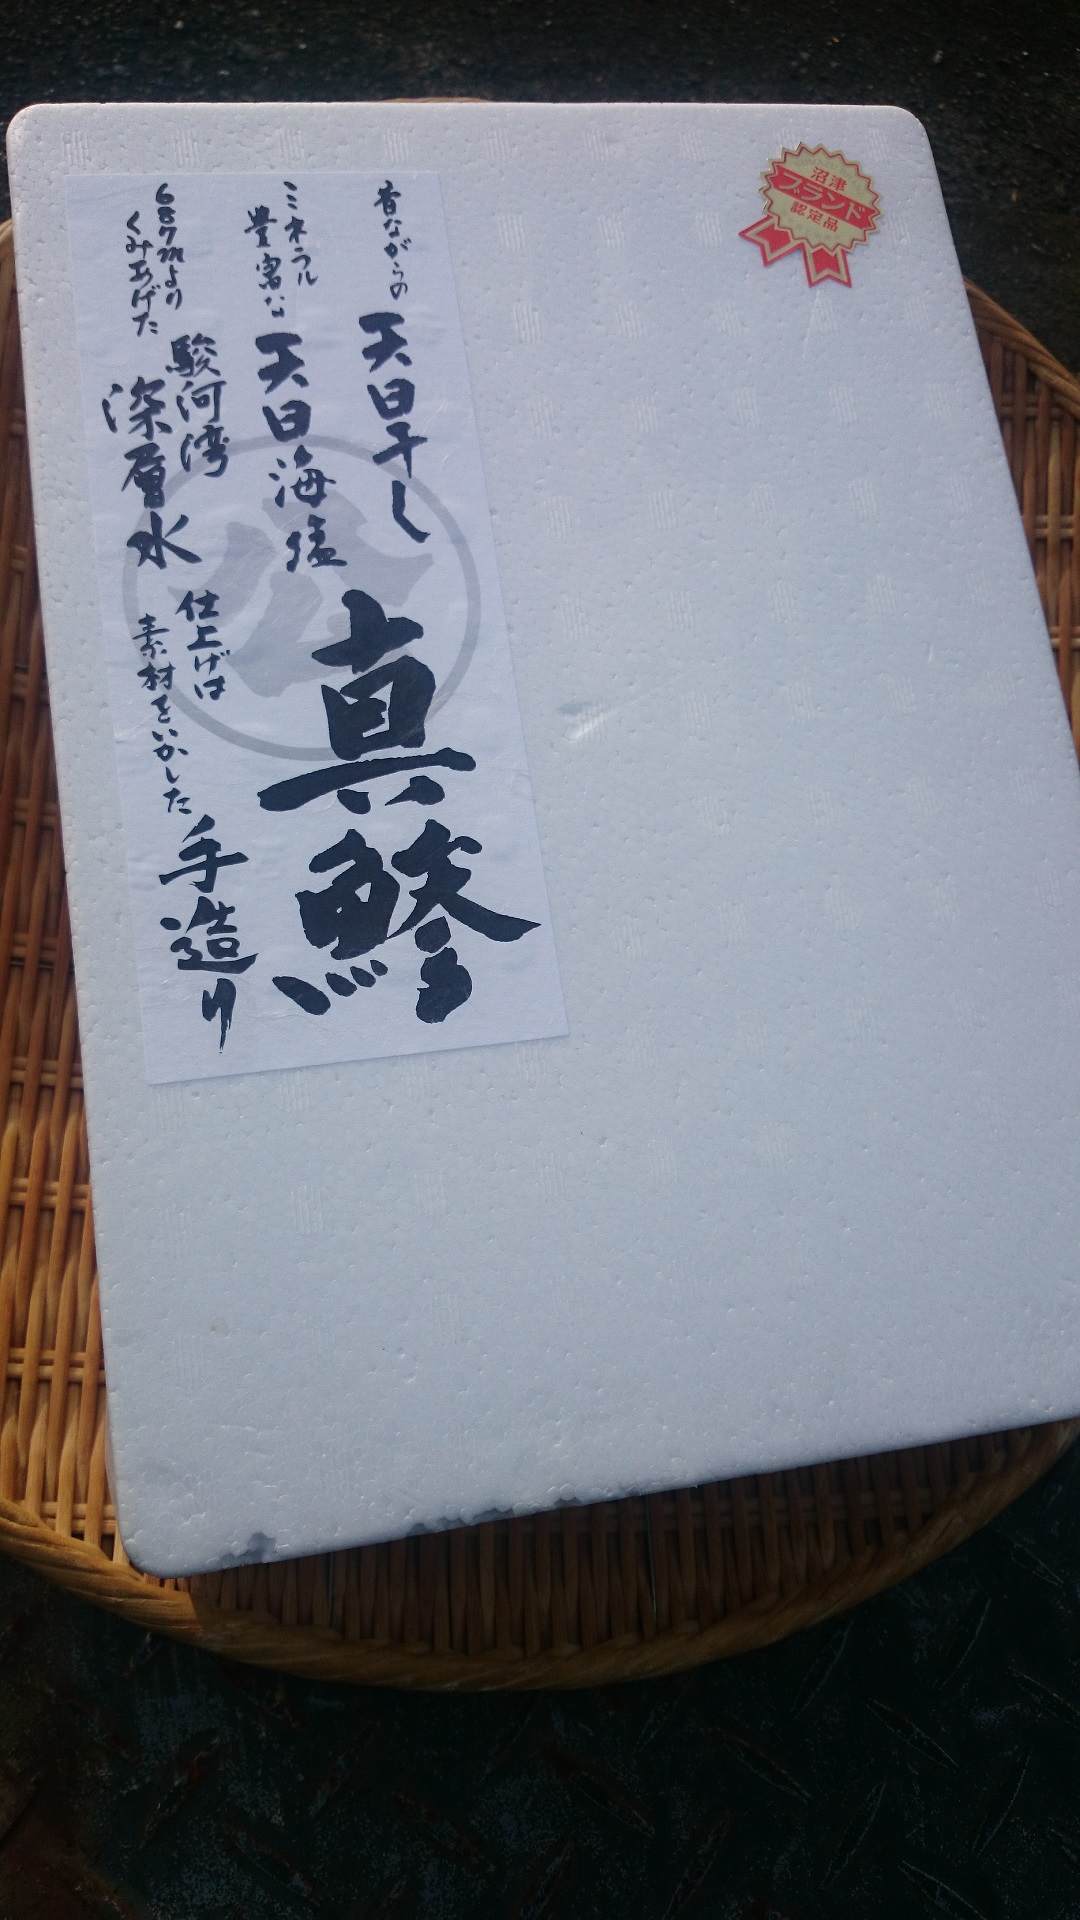 昔ながらの
天日干し
真鯵
ミネラル
豊富な
天日海塩
687mより
くみあげた
駿河湾
深層水
仕上げは
素材をいかした
手造り
沼津
ブランド
認定品